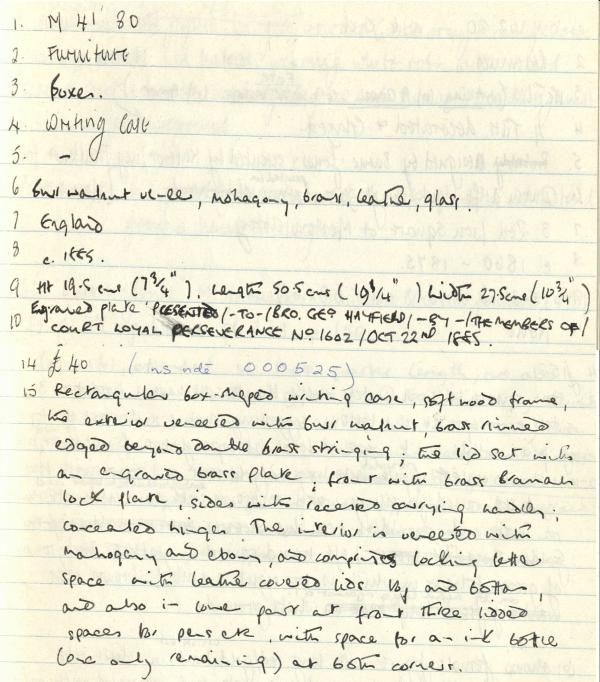 1. M 41' 80
2. FURNITURE
3. Boxes.
4. Writing Case
5. -
6 Burr walnut veneer, mahogany, brass, leather, glass.
7 England
8 c. 1885.
9 Ht 19.5 cms (7¾"), Length 50.5 cms (19¾") Width 27.5cms (10¾")
10 Engraved plate 'PRESENTED/-TO-/BRO. GEO HAYFIELD/-BY-/THE MEMBERS OF/
COURT LOYAL PERSEVERANCE No 1602 / OCT 22nd 1885.
14 £40 (Ins ndé 000525)
15 Rectangular box-shaped writing case, soft wood frame,
the exterior veneered with burr walnut, brass rimmed
edged beyond double brass stringing; the lid set with
an engraved brass plate; front with brass Bramah
lock plate, sides with recessed carrying handles;
concealed hinges. The interior is veneered with
mahogany and ebony, and comprises locking letter
space with leather covered lids top and bottom,
and also in lower part at front three lidded
spaces for pens etc, with space for an ink bottle
(one only remaining) at both corners.